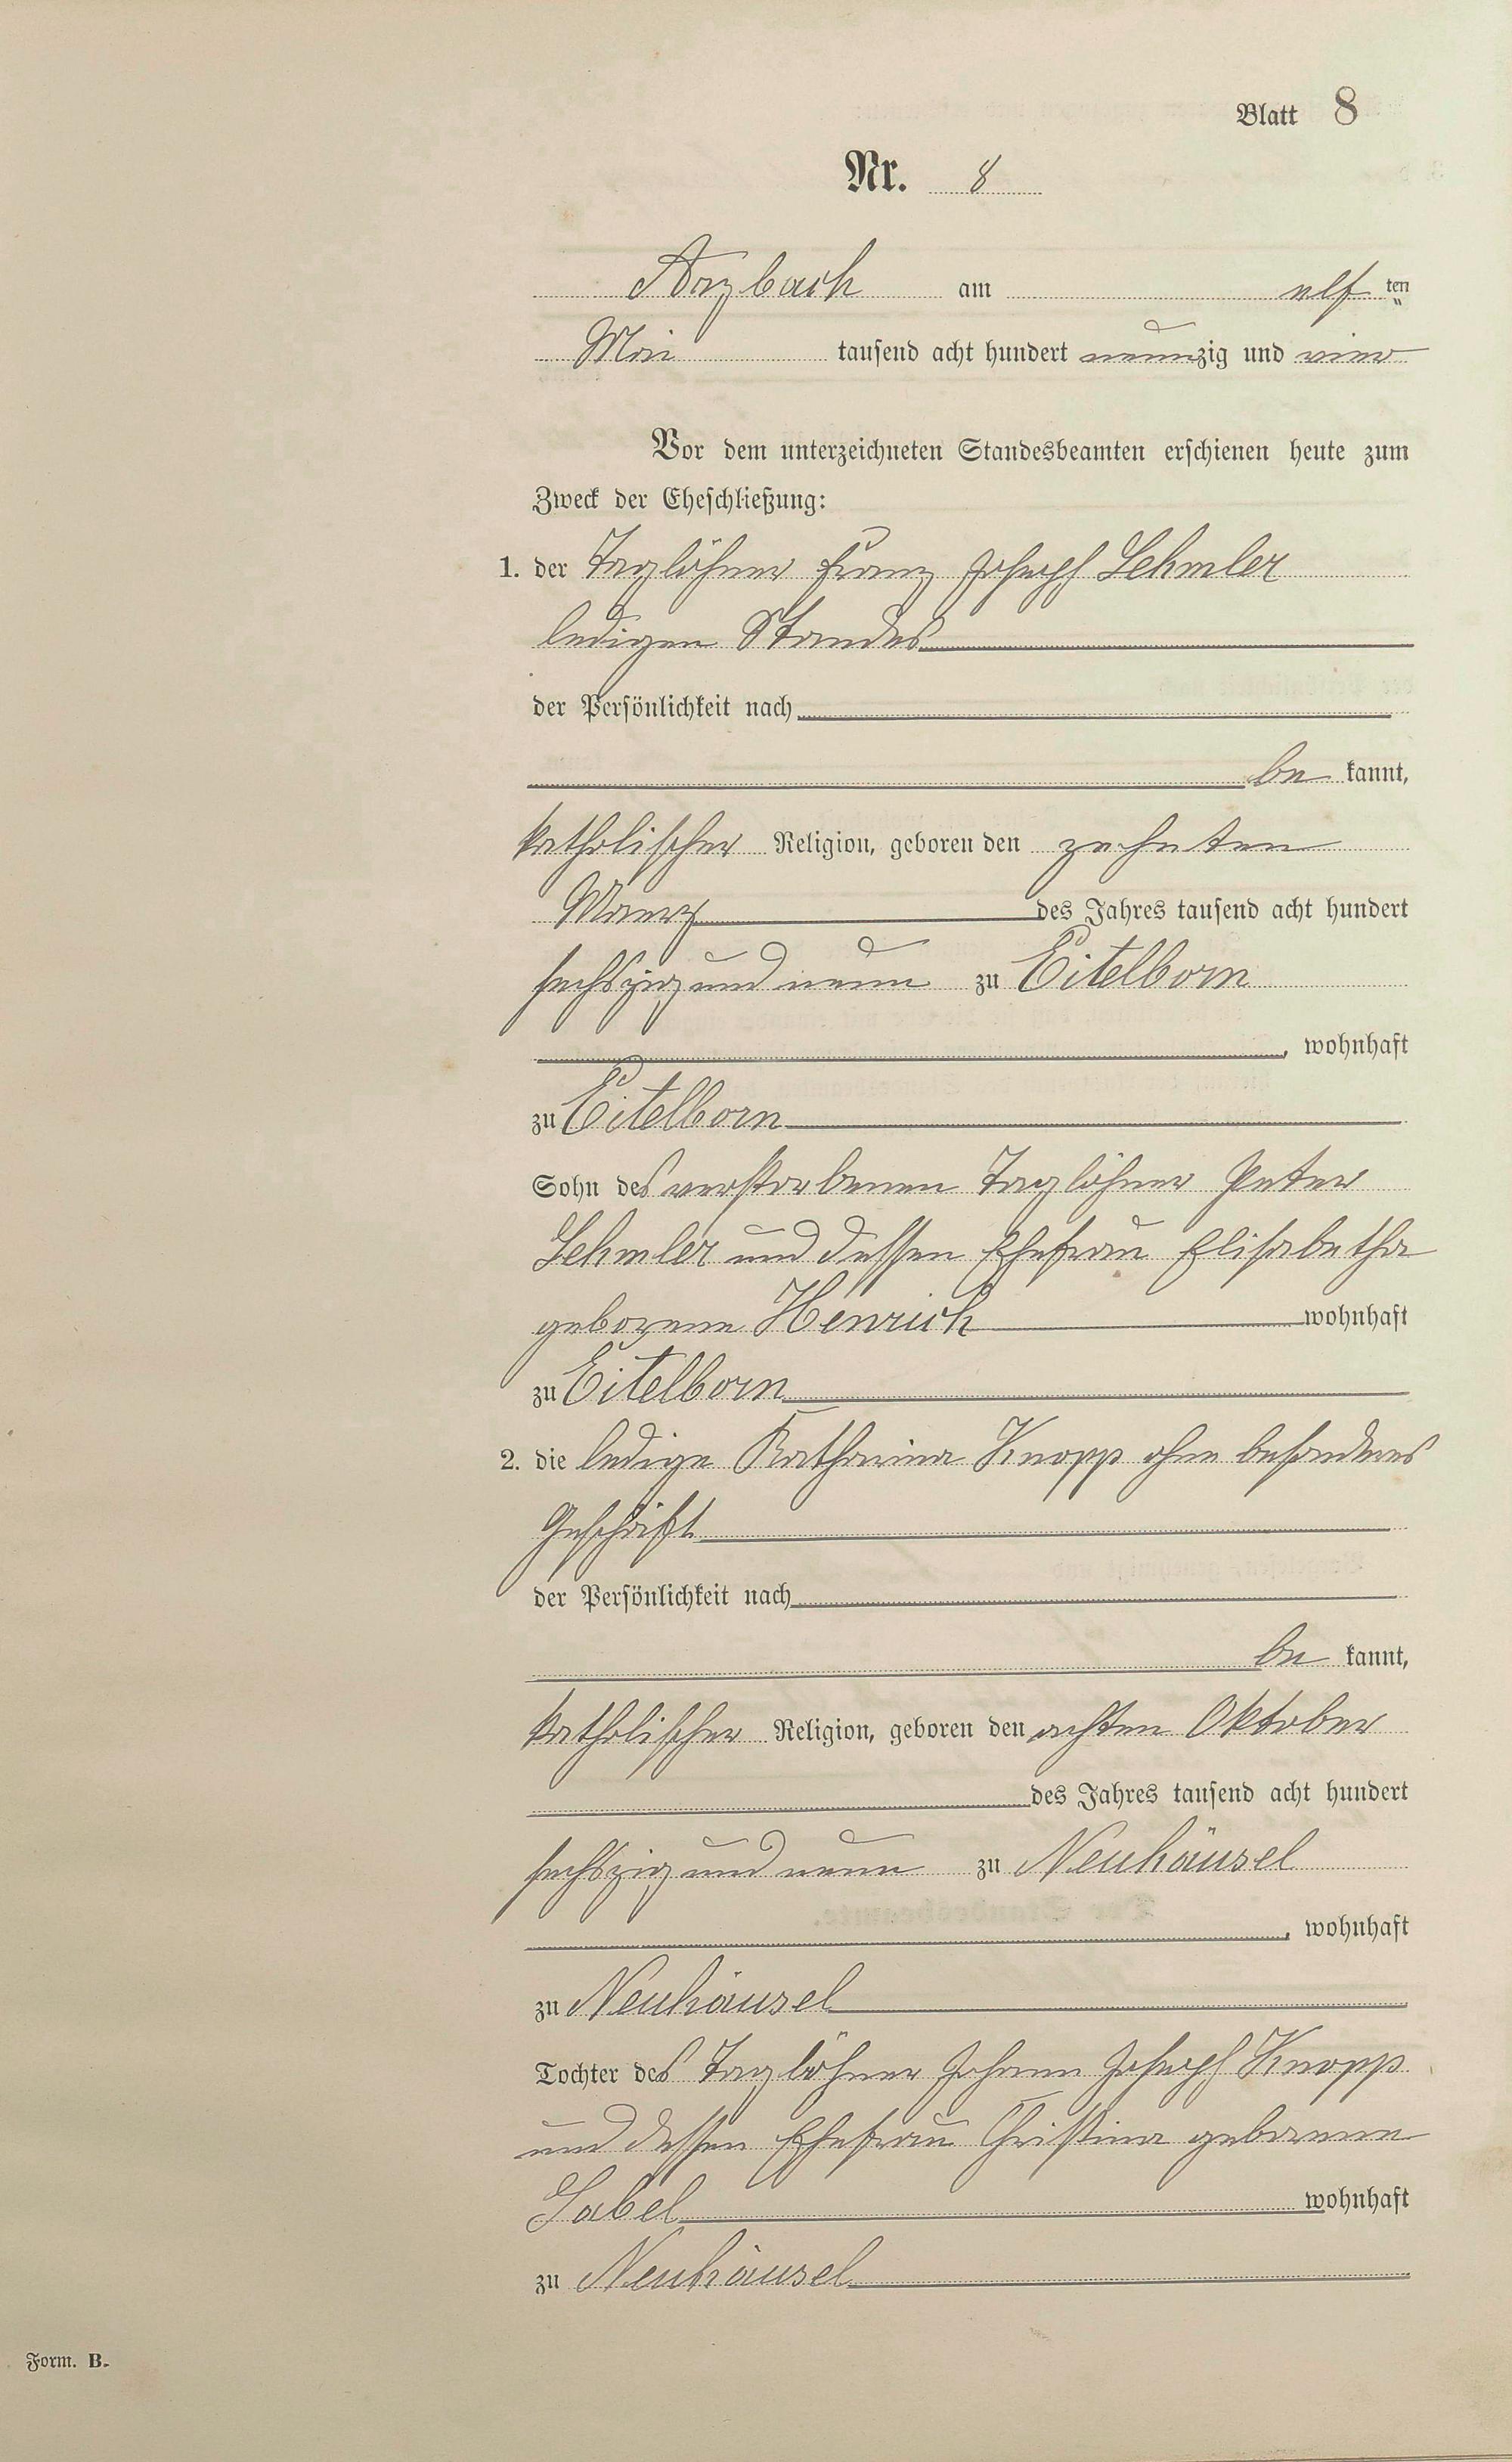 Blatt 8
Nr. 8
Arzbach am elf ten
Mai tausend acht hundert neunzig und vier
Vor dem unterzeichneten Standesbeamten erschienen heute zum
Zweck der Eheschließung:
1. der Taglöhner Franz Joseph Lehmler
ledigen Standes
der Persönlichkeit nach
be kannt,
katholischer Religion, geboren den zehnten
Maerz des Jahres tausend acht hundert
sechszig und neun zu Eitelborn
, wohnhaft
zu Eitelborn
Sohn des verstorbenen Taglöhner Peter
Lehmler und dessen Ehefrau Elisabetha
geborene Henrich wohnhaft
zu Eitelborn
2. die ledige Katharina Knopp ohne besonderes
Geschäft
der Persönlichkeit nach
be kannt,
katholischer Religion, geboren den achten Oktober
des Jahres tausend acht hundert
sechszig und neun zu Neuhäusel
, wohnhaft
zu Neuhäusel
Tochter des Taglöhner Johann Joseph Knopp
und dessen Ehefrau Christina geborene
Sabel wohnhaft
zu Neuhäusel
Form. B.